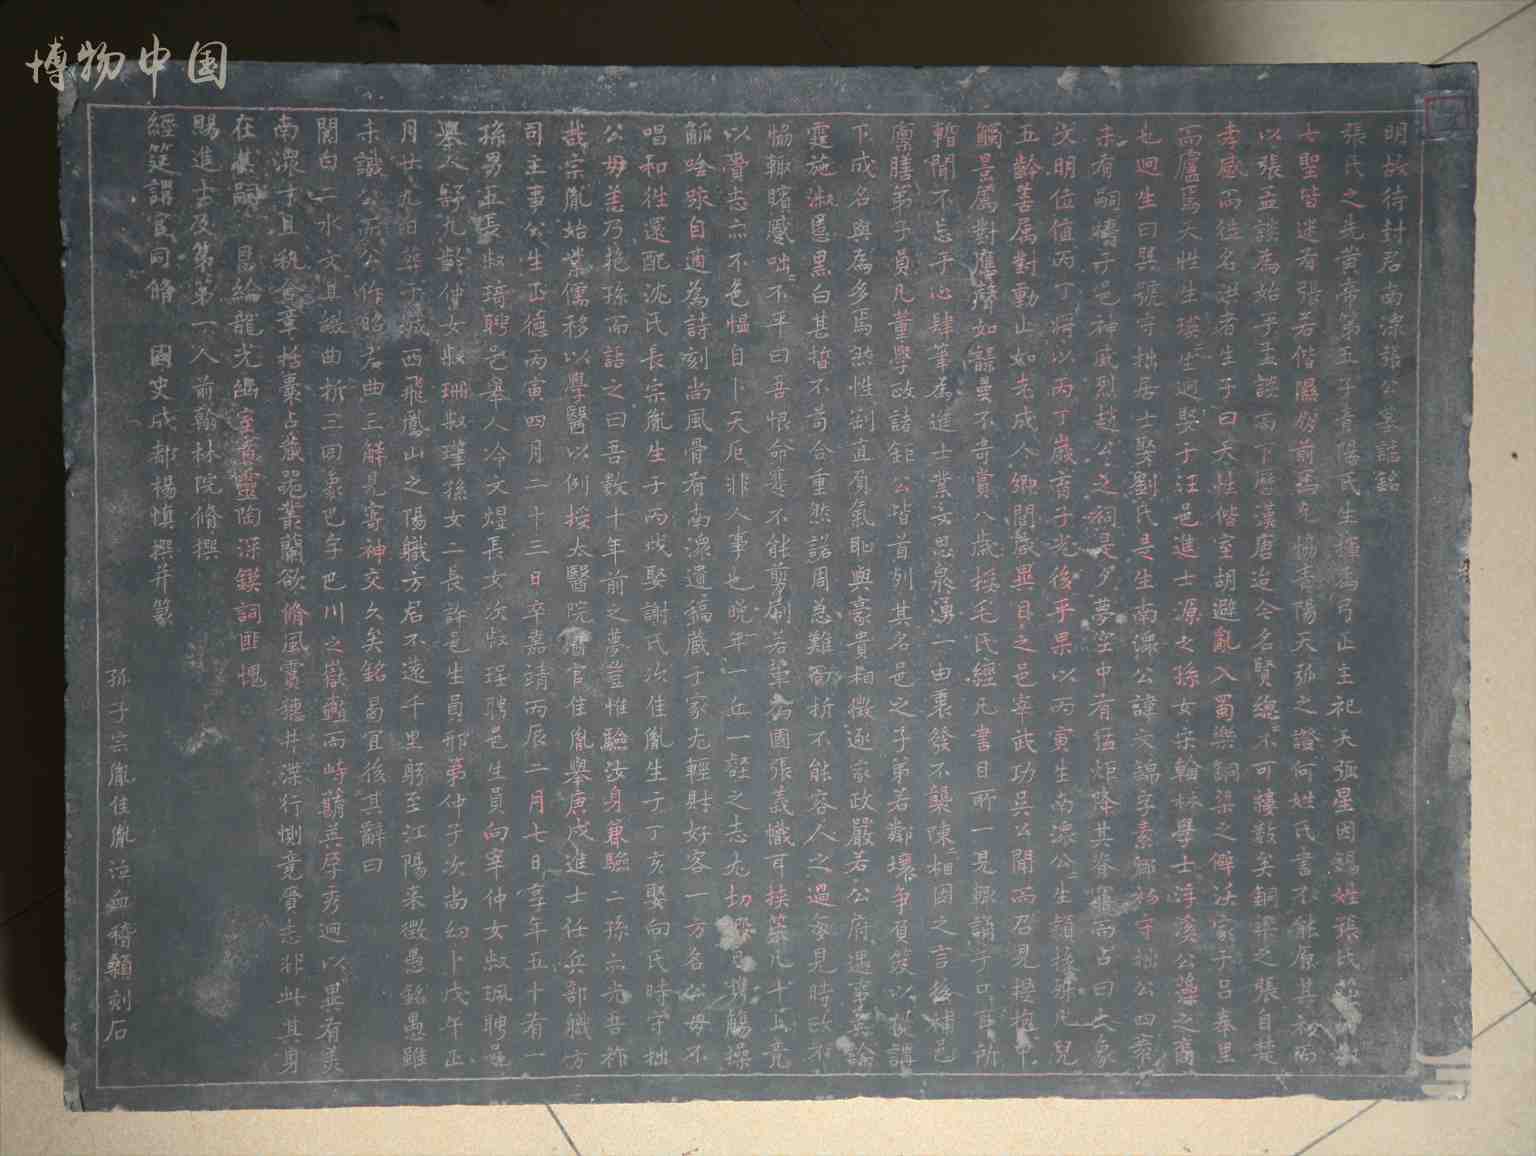 博物中国
明故待封君南溧張公墓誌銘
張氏之先黃帝第五子青陽氏生揮為弓正主祀天張星因賜姓張氏
七聖皆迷有張若偕隰朋前馬 協青陽天弧之證何姓氏書不能原其初而
以張孟談為始乎孟談而下歷漢唐迨今名賢總不可縷數矣銅梁之張自楚
孝感而徙名洪者生子曰天性偕室胡避亂入蜀樂銅梁之 沃家子呂奉里
而廬焉天性生瑛瑛生迥娶于汪邑進士源之孫女宋翰林學士浮溪公藻之裔
也迥生曰 號守拙居士娶劉氏是生南溧公諱文錦字素卿初守拙公四
未有嗣禱于邑神威烈趙公之祠是夕夢空中有 炬降其脊 而占曰火象
文明位值丙丁將以丙丁歲育子光後乎果以丙寅生南溧公生穎 殊凡兒
五齡善屬對動止如老成人鄉閭嚴異目之邑宰武功吳公聞而召見提抱
觴景屬對應聲如謠 不奇賞八歲授毛氏經凡書目所一見輒誦于口耳所
暫聞不忘乎心肆筆為進士業玄思泉湧一由衷發不襲陳相因之言後補邑
廩膳第子員凡董學政諸鉅公皆首列其名邑之子弟若鄰環爭負笈以從講
下成名與為多焉然性剴直負氣恥與豪貴相徵逐家政嚴若公府遇事 論
霆施 慝黑白甚晳不苟合重然諾周急難 析不能容人之過每見時政不
愜輒睹蹙咄咄不平曰吾恨命蹇不能剪刷若輩為國張義幟耳挾策凡十五竟
以賫志亦不色慍自卜天厄非人事也晚年一丘一壑之志尤切 携觴操
觚唫 自適為詩刻尚風骨有南溧遺稿藏于家尤輕財好客一方名 毋不
唱和往還配沈氏長宗胤生子丙戌娶謝氏次佳胤生于丁亥娶向氏時守拙
公毋恙乃抱孫而詒之曰吾數十年前之夢豈惟驗汝身兼驗二孫亦光吾祚
哉宗胤始業儒移以學醫以例授太醫院醫官佳胤舉庚戌進士任兵部職方
司主事公生正德丙寅四月二十三日卒嘉靖丙辰二月七日享年五十有一
孫男五長叔琦聘邑舉人冷文煜長女次叔珵聘邑生員向宰仲女叔珮聘邑
舉人舒九齡仲女叔珊叔瑋孫女二長許邑生員邢第仲子次尚幼卜戊午正
月廿九日葬于城西飛鳳山之陽職方君不遠千里躬至江陽來徵愚銘愚雖
未識公而公作昭君曲三解見寄神交久矣銘曷宜後其辭曰
閬白二水文其緻曲折三回象巴字巴川之嶽巀而峙 美厚秀迥以異有美
南溧于且 含章括囊占 藂蘭欲脩風霣穗井渫行惻竟賫志非 其身
在其嗣 恩綸龍光幽室 靈陶深鍥詞匪愧
賜進士及第第一人前翰林院脩撰
經筵講官同脩 國史成都楊慎撰并篆
孤子宗胤佳胤泣血稽顙刻石